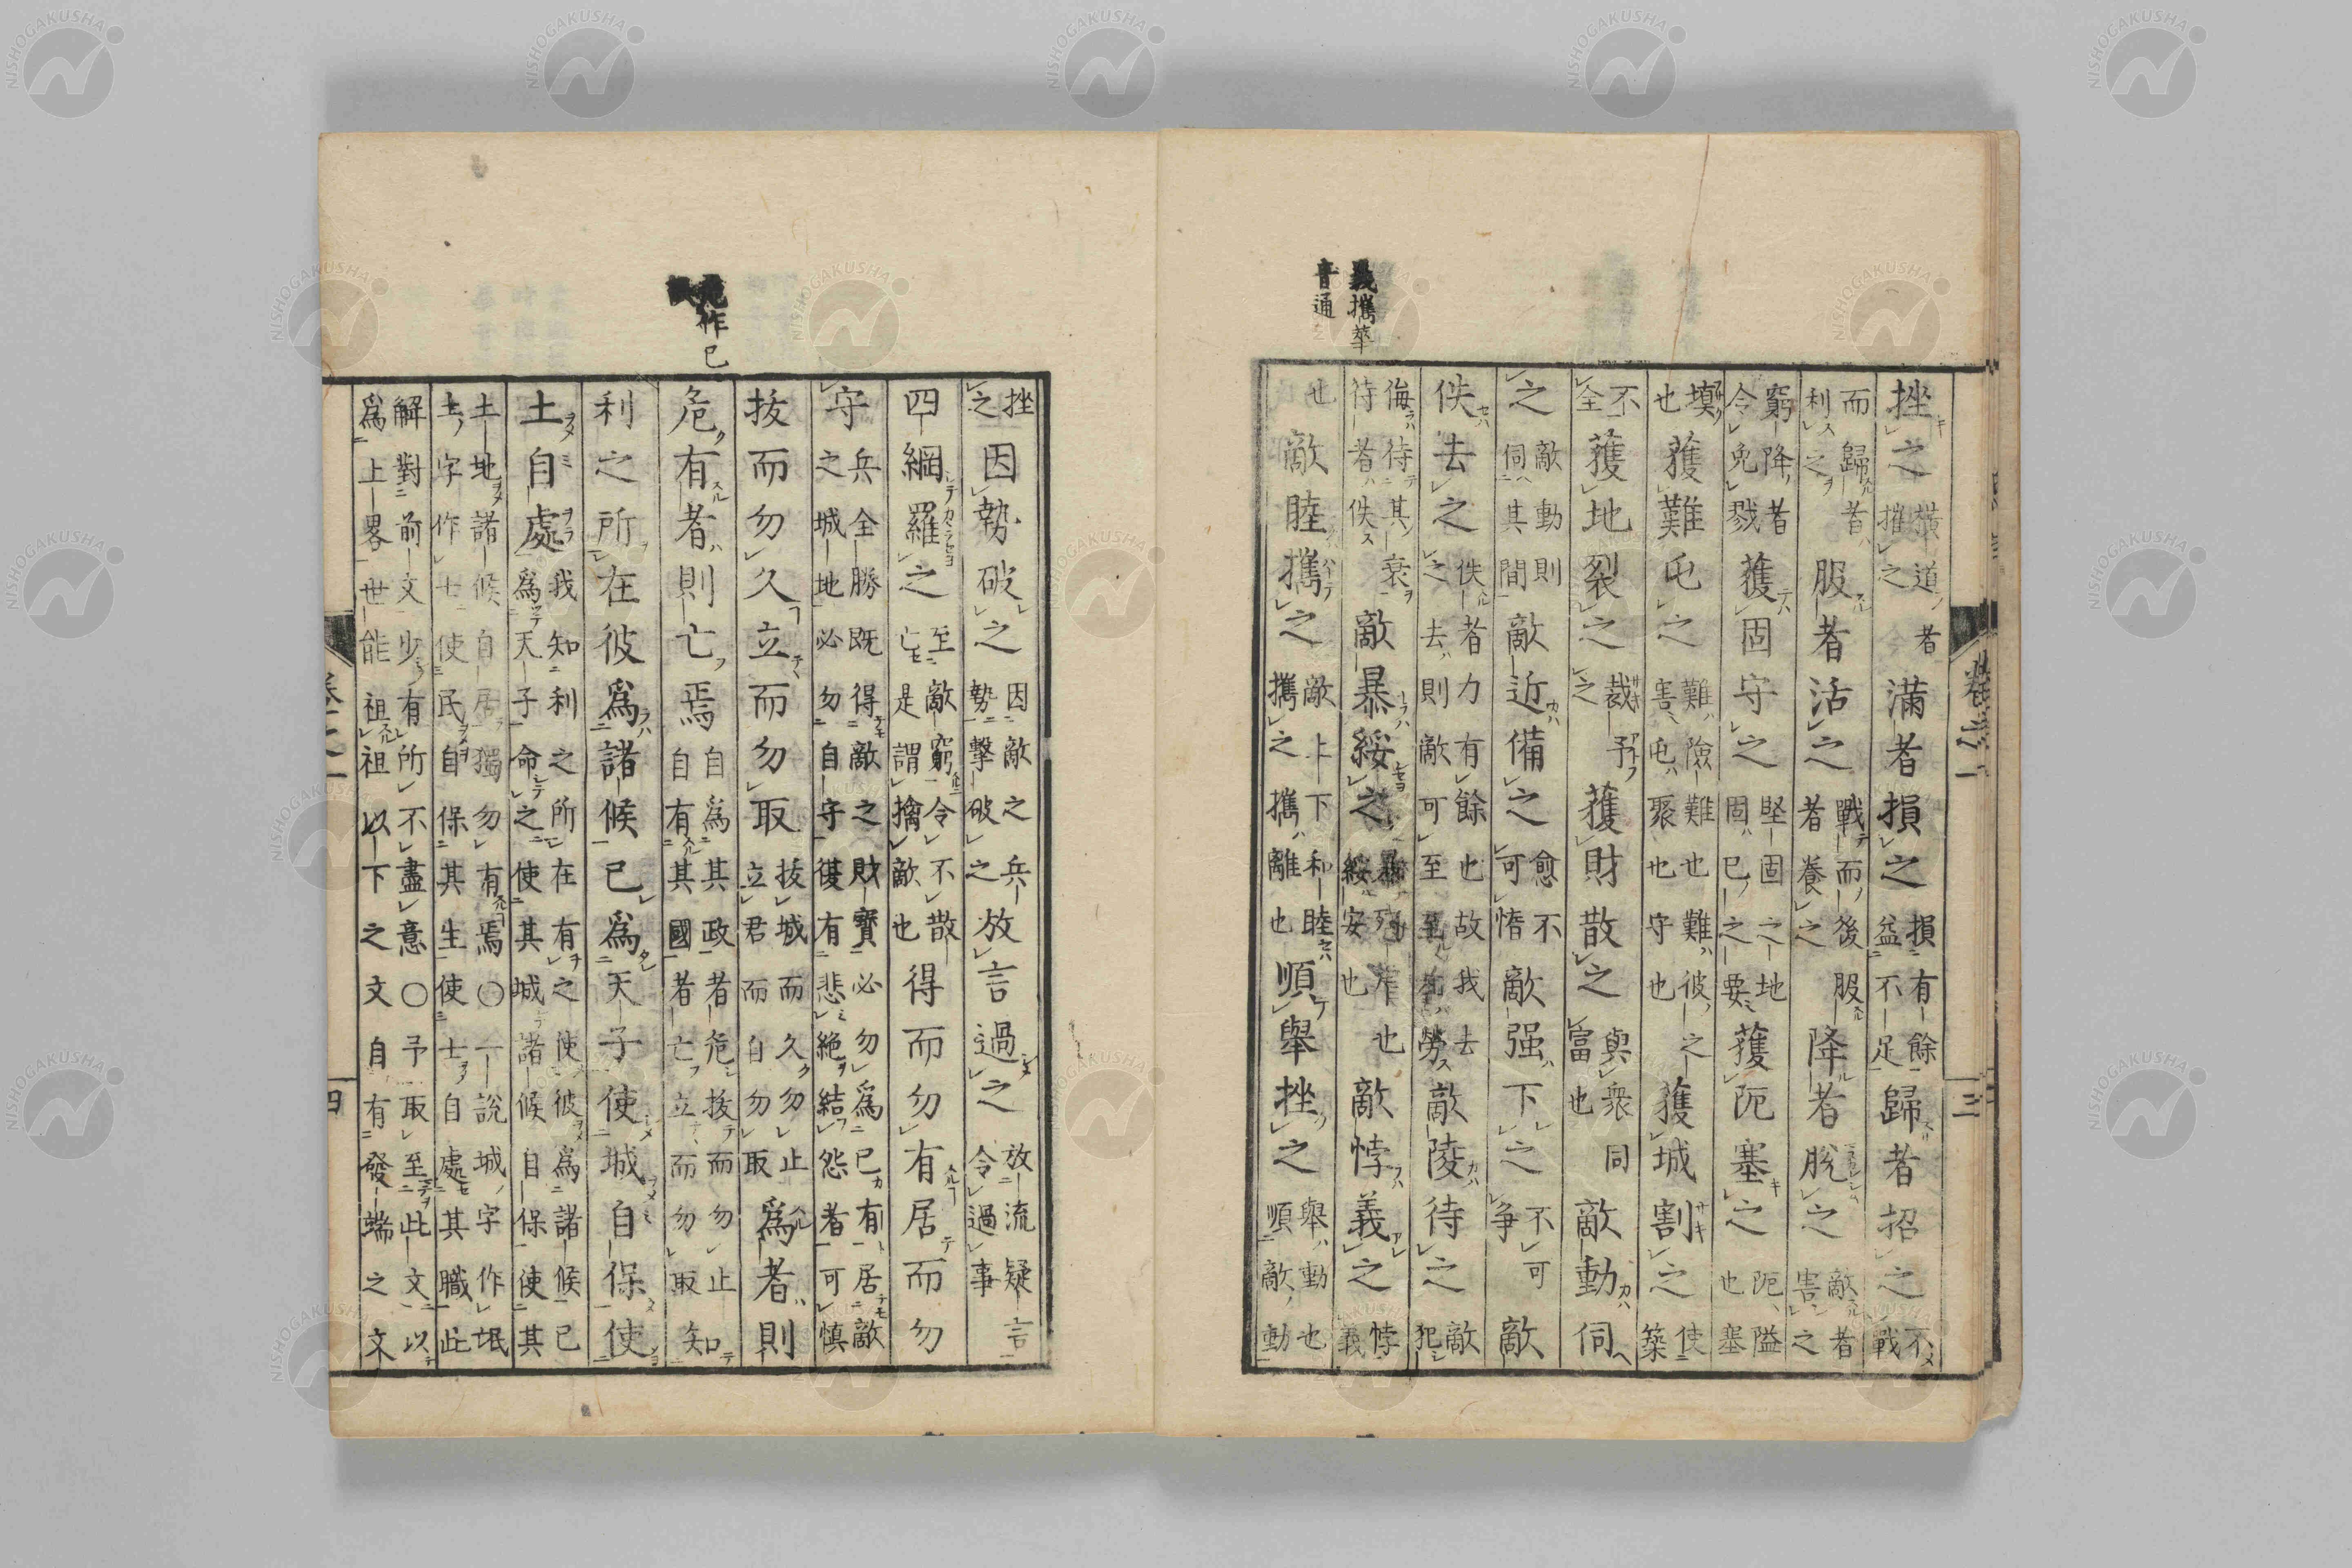 挫之橫道者摧之滿者損之損有餘益不足歸者招之不戰
而歸者利之服者活之戰而後服者養之降者脫之敵者害之
窮降者令免戮獲固守之堅固之地固已之要獲阨塞之阨隘也塞
塡也獲難屯之難險難也難彼之害屯聚也守也獲城割之使築
不全獲地裂之裁予之獲財散之與衆同富也敵動伺
之敵動則伺其間敵近備之愈不可惰敵强下之不可争敵
佚去之佚者力有餘也故我去之去則敵可至至勞敵陵待之敵犯
侮待其衰待者佚敵暴綏之暴也綏安也敵悖義之悖義
也敵睦攜之敵上下和睦攜之攜離也順舉挫之舉動也順敵動
義攜華
音通
卷之一
三
挫之因勢破之因敵之兵勢擊破之放言過之放流疑言令過事
四綱羅之至敵窮令不散亡是謂擒敵也得而勿有居而勿
守兵全勝既得敵之財寶必勿爲已有居敵之城地必勿自守復有悲絶結怨者可慎
拔而勿久立而勿取拔城而久勿止立君而自勿取爲者則
危有者則亡焉自爲其政者危拔而勿止知自有其國者亡立而勿取
利之所在彼爲諸候已爲天子使城自保使
土自處我知利之所在有之使彼爲諸候已爲天子命之使其城諸候自保使其
土地諸候自居獨勿有焉○一說城字作氓土字作士使民自保其生使士自處其職此
解對前文少有所不盡意○予取至此文以爲上畧世能祖祖以下之文自有發端之文
危作已
四